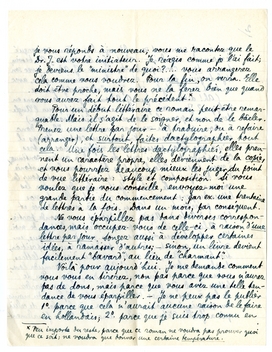 je vous réponds à nouveau; vous me racontez que le
Dr. J. est votre initiateur. Je réagis comme je l'ai fait;
je deviens le "ministre" de quoi?... vous arrangerez
cela comme vous voudrez. Pour la fin, on verra. Elle
doit être proche, mais vous ne la ferez bien que quand
vous aurez fait tout le précédent.
Pour un début littéraire ce roman peut être remar-
quable. Mais il s'agit de le soigner, et non de le bâcler.
Prenez une lettre par jour – à traduire, ou à refaire
(arranger) et surtout faites dactylographier tout
cela. Une fois les lettres dactylographiées, elles pren-
nent un caractère propre, elles deviennent de la copie,
et vous pourrez beaucoup mieux les juger, du point
de vue littéraire: style et composition. Et si vous
voulez que je vous conseille, envoyez-moi une
grande partie du commencement: par ex. une trentaine
de lettres à la fois. Dans un mois, par conséquent.
Ne vous éparpillez pas dans diverses correspon-
dances, mais occupez-vous de celle-ci, à raison d'une
lettre par jour. Songez aussi à développer certaines
idées, à ramasser d'autres; – sinon, un livre devient
facilement "bavard", au lieu de "charmant".
Voilà pour aujourd'hui. Je me demande comment
vous vous en tirerez, non pas parce que vous n'aurez
pas de dons, mais parce que vous avez une telle ten-
dance de vous éparpiller. – Je ne peux pas le publier
1° parce que cela n'aurait aucune raison de le faire
en hollandais, 2° parce que je suis trop connu en
* Peu importe du reste, parce que ce roman ne voudra pas prouver quoi
que ce soit; ne voudra que donner une certaine température.